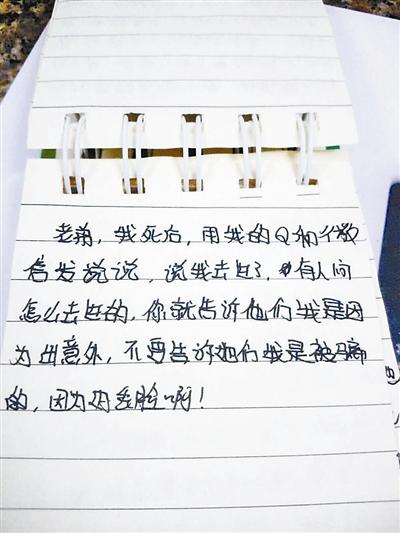 老，我死后，用我的Q和微
信发说说，说我去世了，有人问
怎么去世的，你就告诉他们我是因
为出意外，不要告诉她们我是被骗
的，因为脸啊！